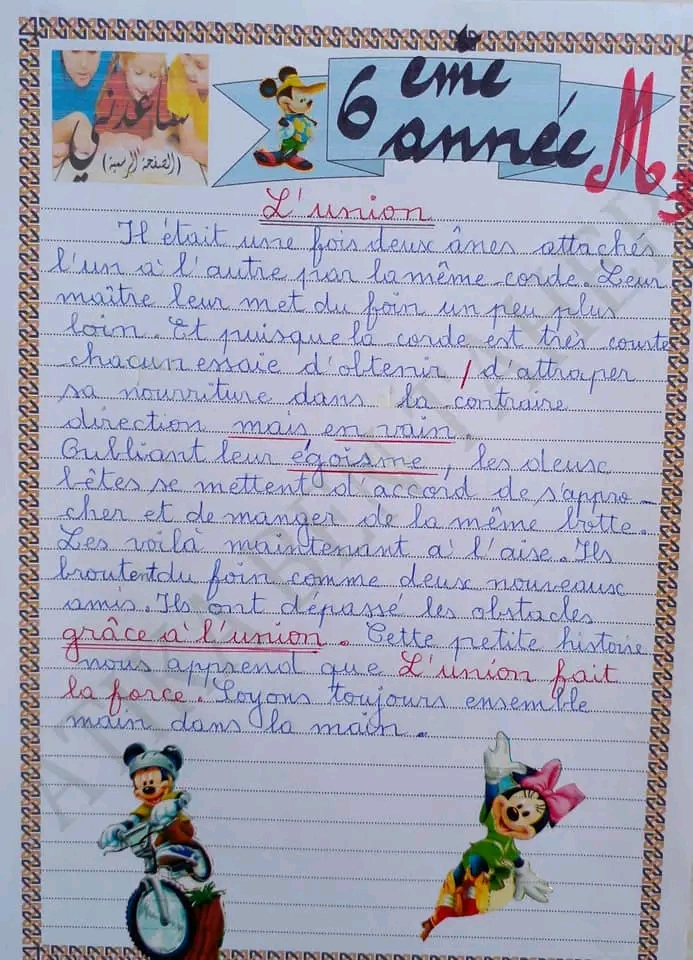 ساعدني
(الصفحة الرسمية)
6 eme
année
M3
L'union
Il était une fois deux ânes attachés
l'un à l'autre par la même corde. Leur
maître leur met du foin un peu plus
loin. Et puisque la corde est très courte
chacun essaie d'obtenir / d'attraper
sa nourriture dans la contraire
direction mais en vain.
Oubliant leur égoisme, les deux
bêtes se mettent d'accord de s'appro-
cher et de manger de la même botte.
Les voilà maintenant à l'aise. Ils
broutent du foin comme deux nouveaux
amis. Ils ont dépassé les obstacles
grâce à l'union. Cette petite histoire
nous apprend que L'union fait
la force. Soyons toujours ensemble
main dans la main.
ATIKA BEN TAHER